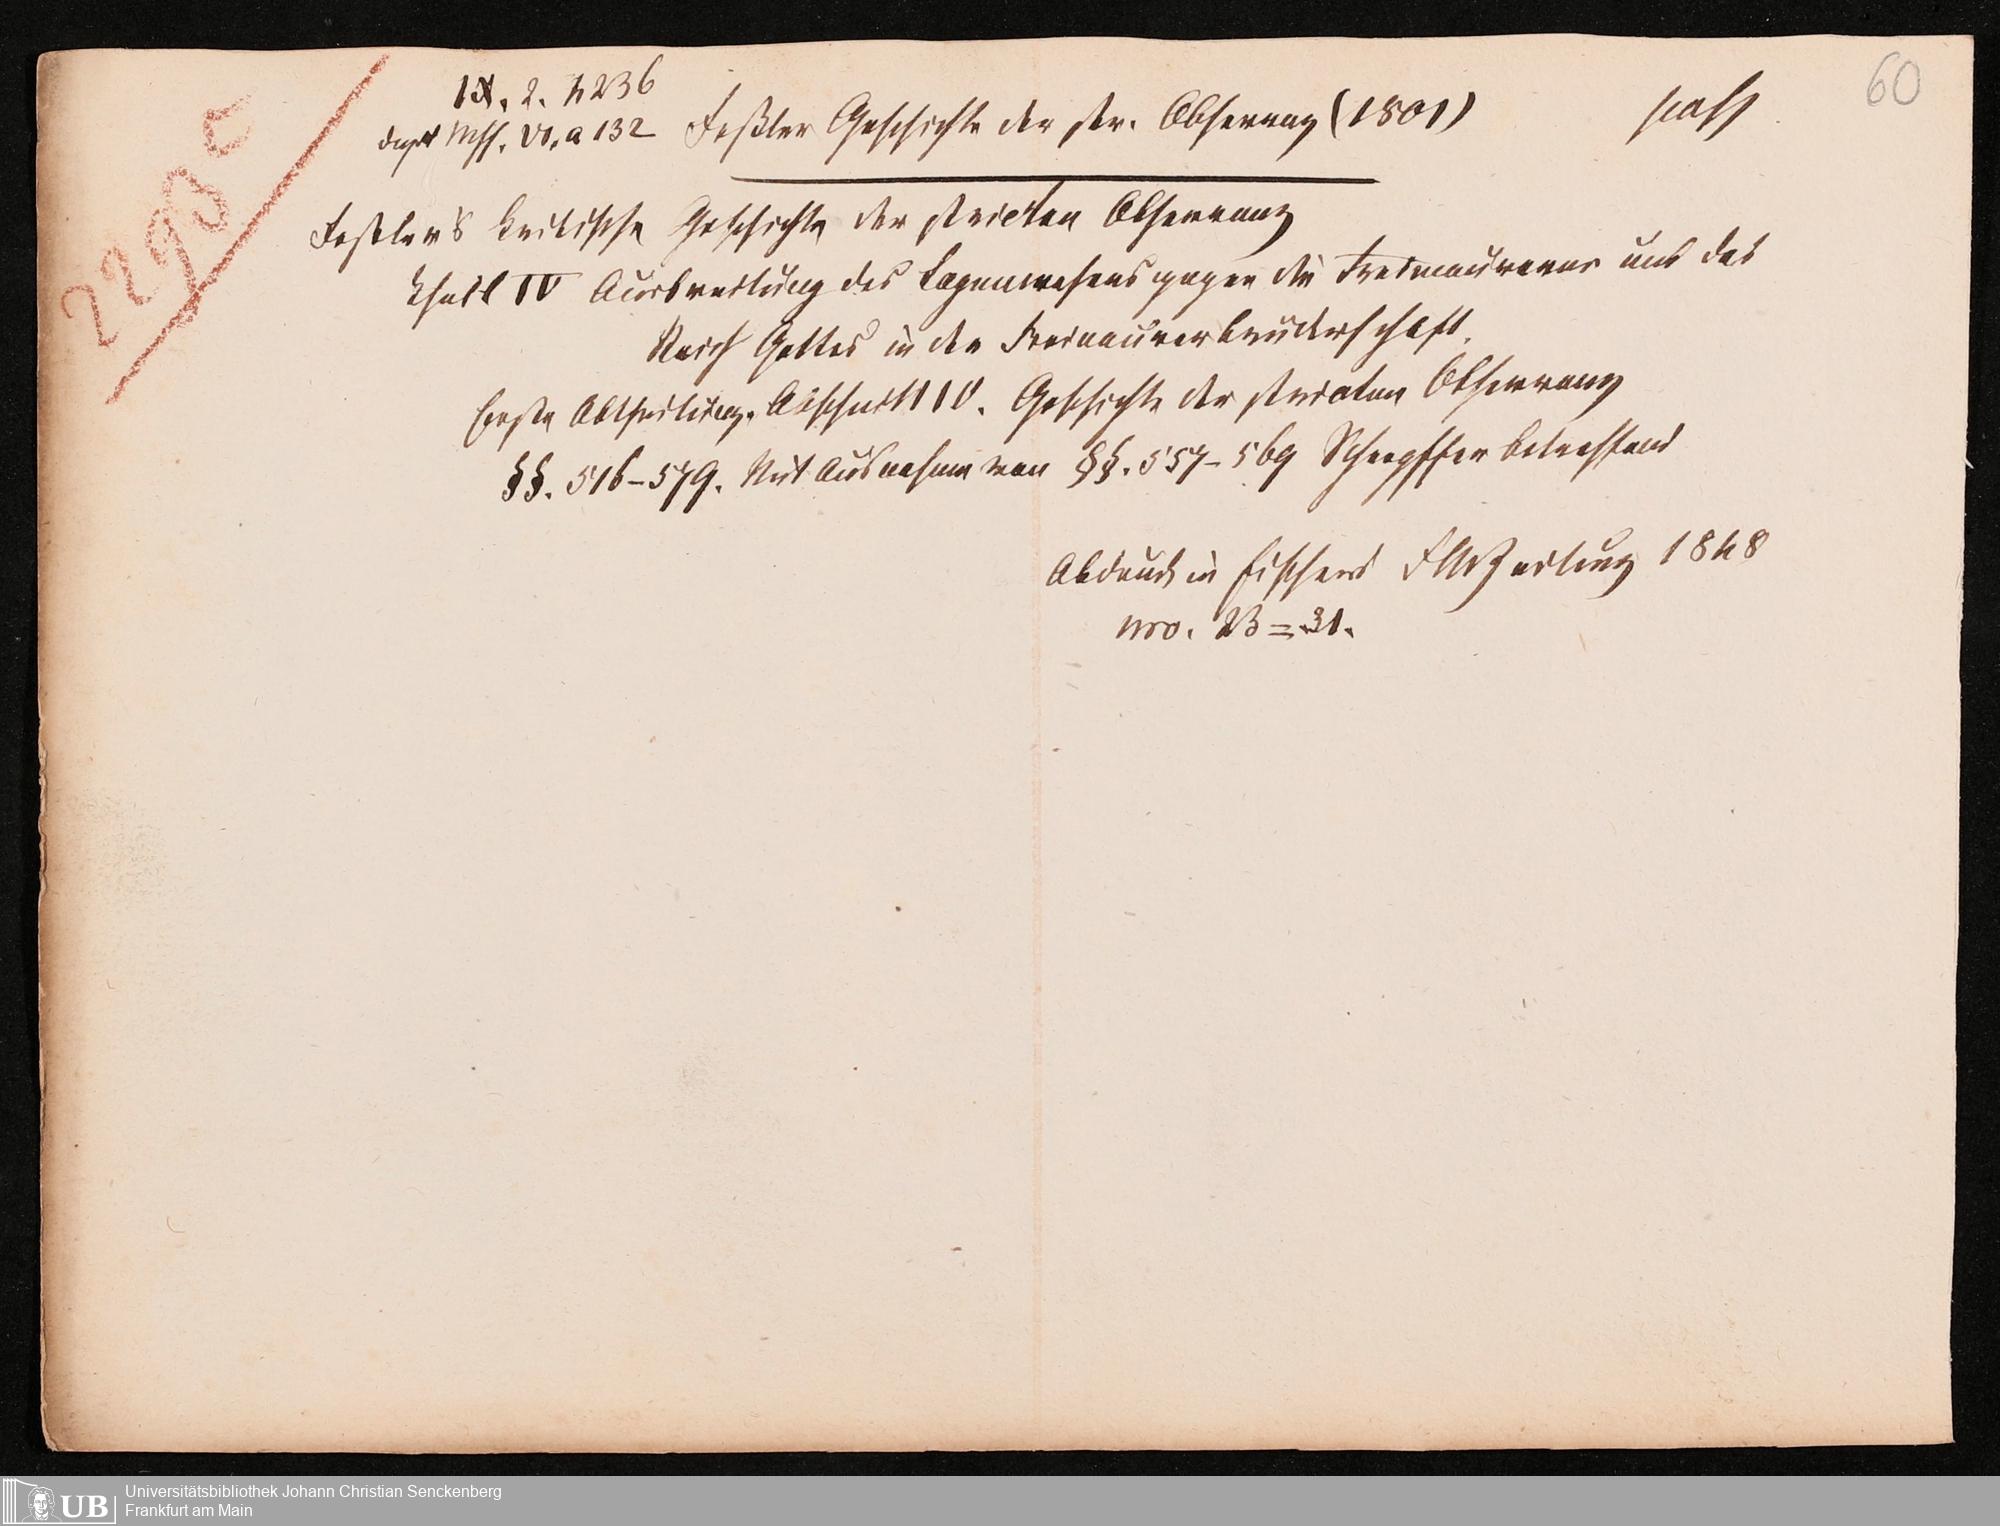 60
2293 c
IX. 2. h 236
Mss. VI. a 132 Feßler Geschichte der str. Observanz (1801)
Feßlers kritische Geschichte der stricten Observanz
Theil IV Ausbreitung des Logenwesens gegen die Freimaurerei und das
Reich Gottes in der Freimaurerbruderschaft.
Erste Abtheilung. Abschnitt IV. Geschichte der stricten Observanz
§§. 516–579. Mit Ausnahme von §§. 557–569 Schrepffer betreffend
Abdruck in Fischers FMZeitung 1848
nro. 23=31.
UB
Universitätsbibliothek Johann Christian Senckenberg
Frankfurt am Main